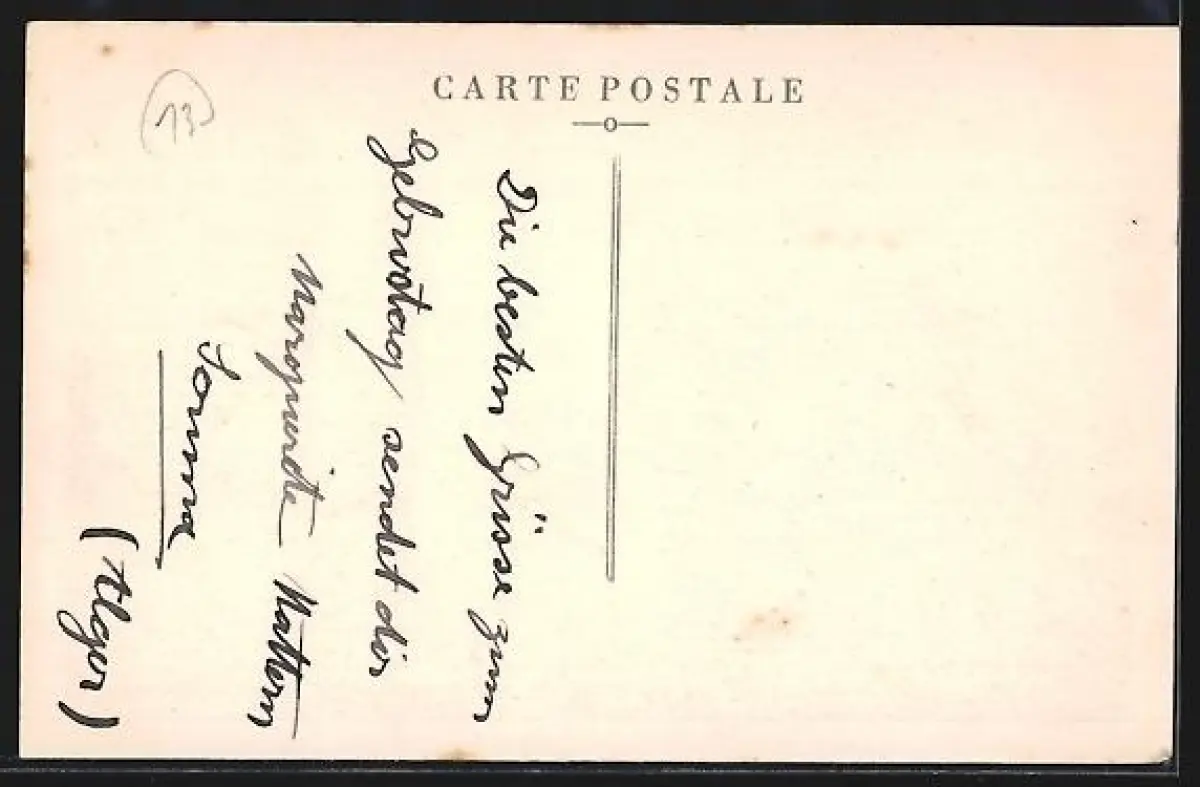 CARTE POSTALE
Die besten Grüsse zum
Geburtstag sendet dir
Marguerite Mattern
(Alger)
13